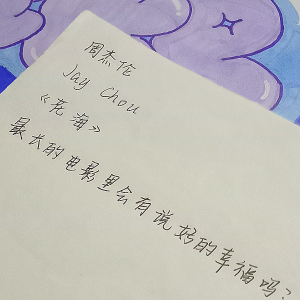 周杰伦
Jay Chou
《花海》
最长的电影里会有说好的幸福吗?